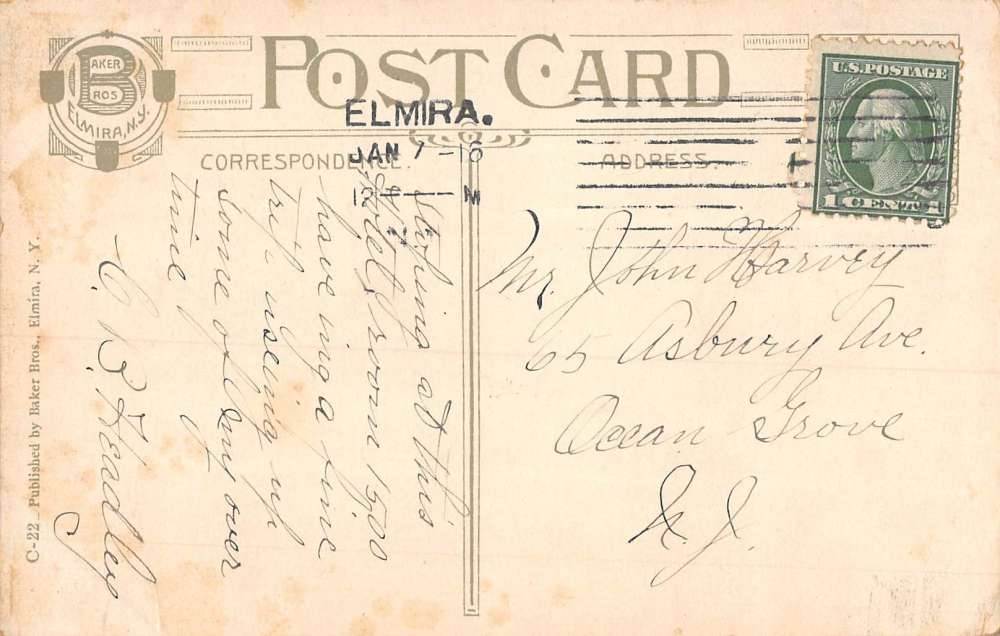 BAKER
B
ROS
ELMIRA, N.Y.
POST CARD
ELMIRA.
JAN 7 - 16
12 M
CORRESPONDENCE
ADDRESS.
U.S. POSTAGE
1 CENT 1
Stoping at this
Hotel, room 1500
haveing a fine
trip useing up
some of my over
time.
C. B. Headley
Mr. John W Harvey
65 Asbury Ave.
Ocean Grove
N. J.
C-22 Published by Baker Bros., Elmira, N. Y.